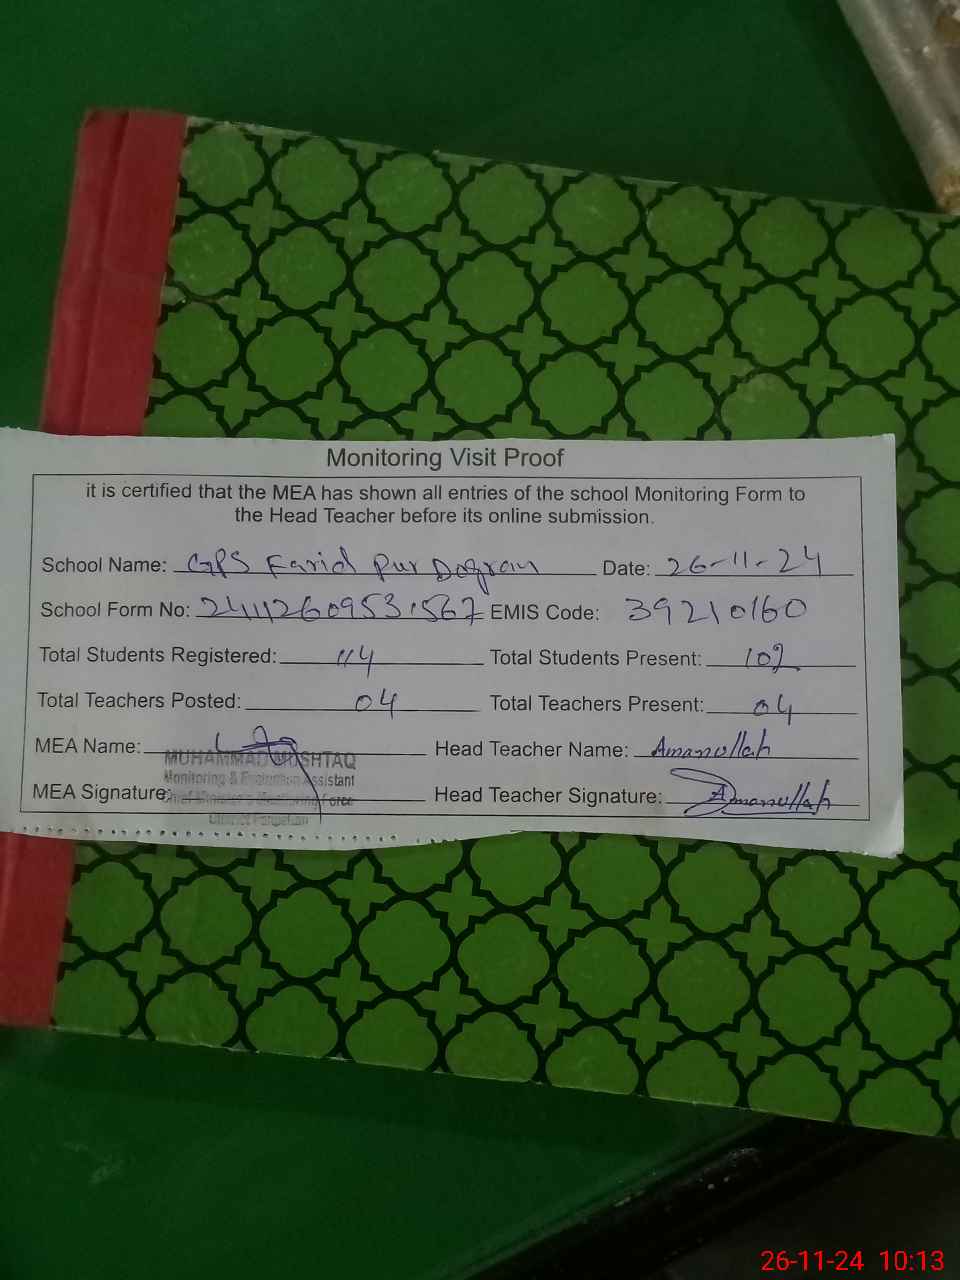 Monitoring Visit Proof
it is certified that the MEA has shown all entries of the school Monitoring Form to
the Head Teacher before its online submission.
School Name: GPS Farid Pur Dogran Date: 26-11-24
School Form No: 24112609531567 EMIS Code: 39210160
Total Students Registered: 114 Total Students Present: 102
Total Teachers Posted: 04 Total Teachers Present: 04
MEA Name: Head Teacher Name: Amanullah
MUHAMMAD MUSHTAQ
Monitoring & Evaluation Assistant
MEA Signature: Head Teacher Signature: Amanullah
Chief Minister's Monitoring Force
District Pakpattan
26-11-24 10:13